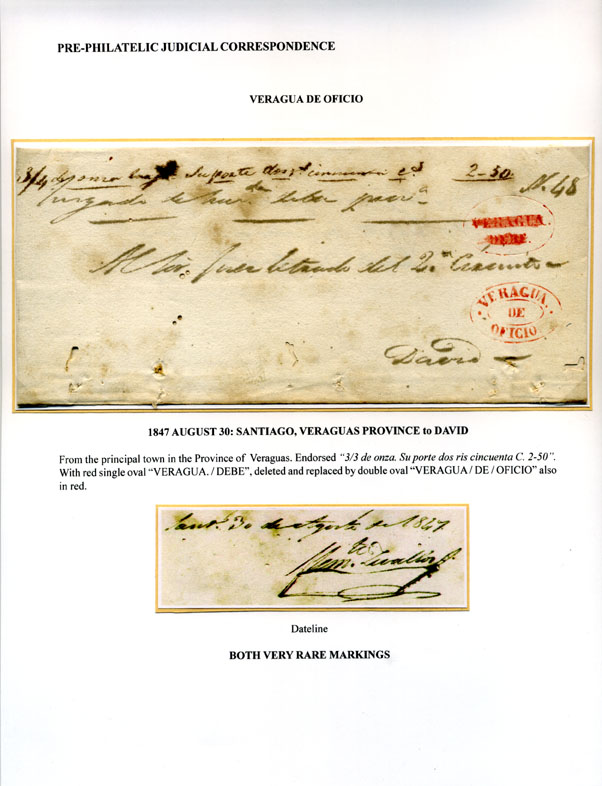 PRE-PHILATELIC JUDICIAL CORRESPONDENCE
VERAGUA DE OFICIO
3/4 de onza Su porte dos rs cincuenta cs 2-50
N. 48
Juzgado de
VERAGUA.
DEBE.
Al Sór. Juez letrado del 2.º Circuito
VERAGUA
DE
OFICIO
David
1847 AUGUST 30: SANTIAGO, VERAGUAS PROVINCE to DAVID
From the principal town in the Province of Veraguas. Endorsed "3/3 de onza. Su porte dos rls cincuenta C. 2-50".
With red single oval "VERAGUA. / DEBE", deleted and replaced by double oval "VERAGUA / DE / OFICIO" also
in red.
Sant.º 30 de Agosto de 1847
Dateline
BOTH VERY RARE MARKINGS